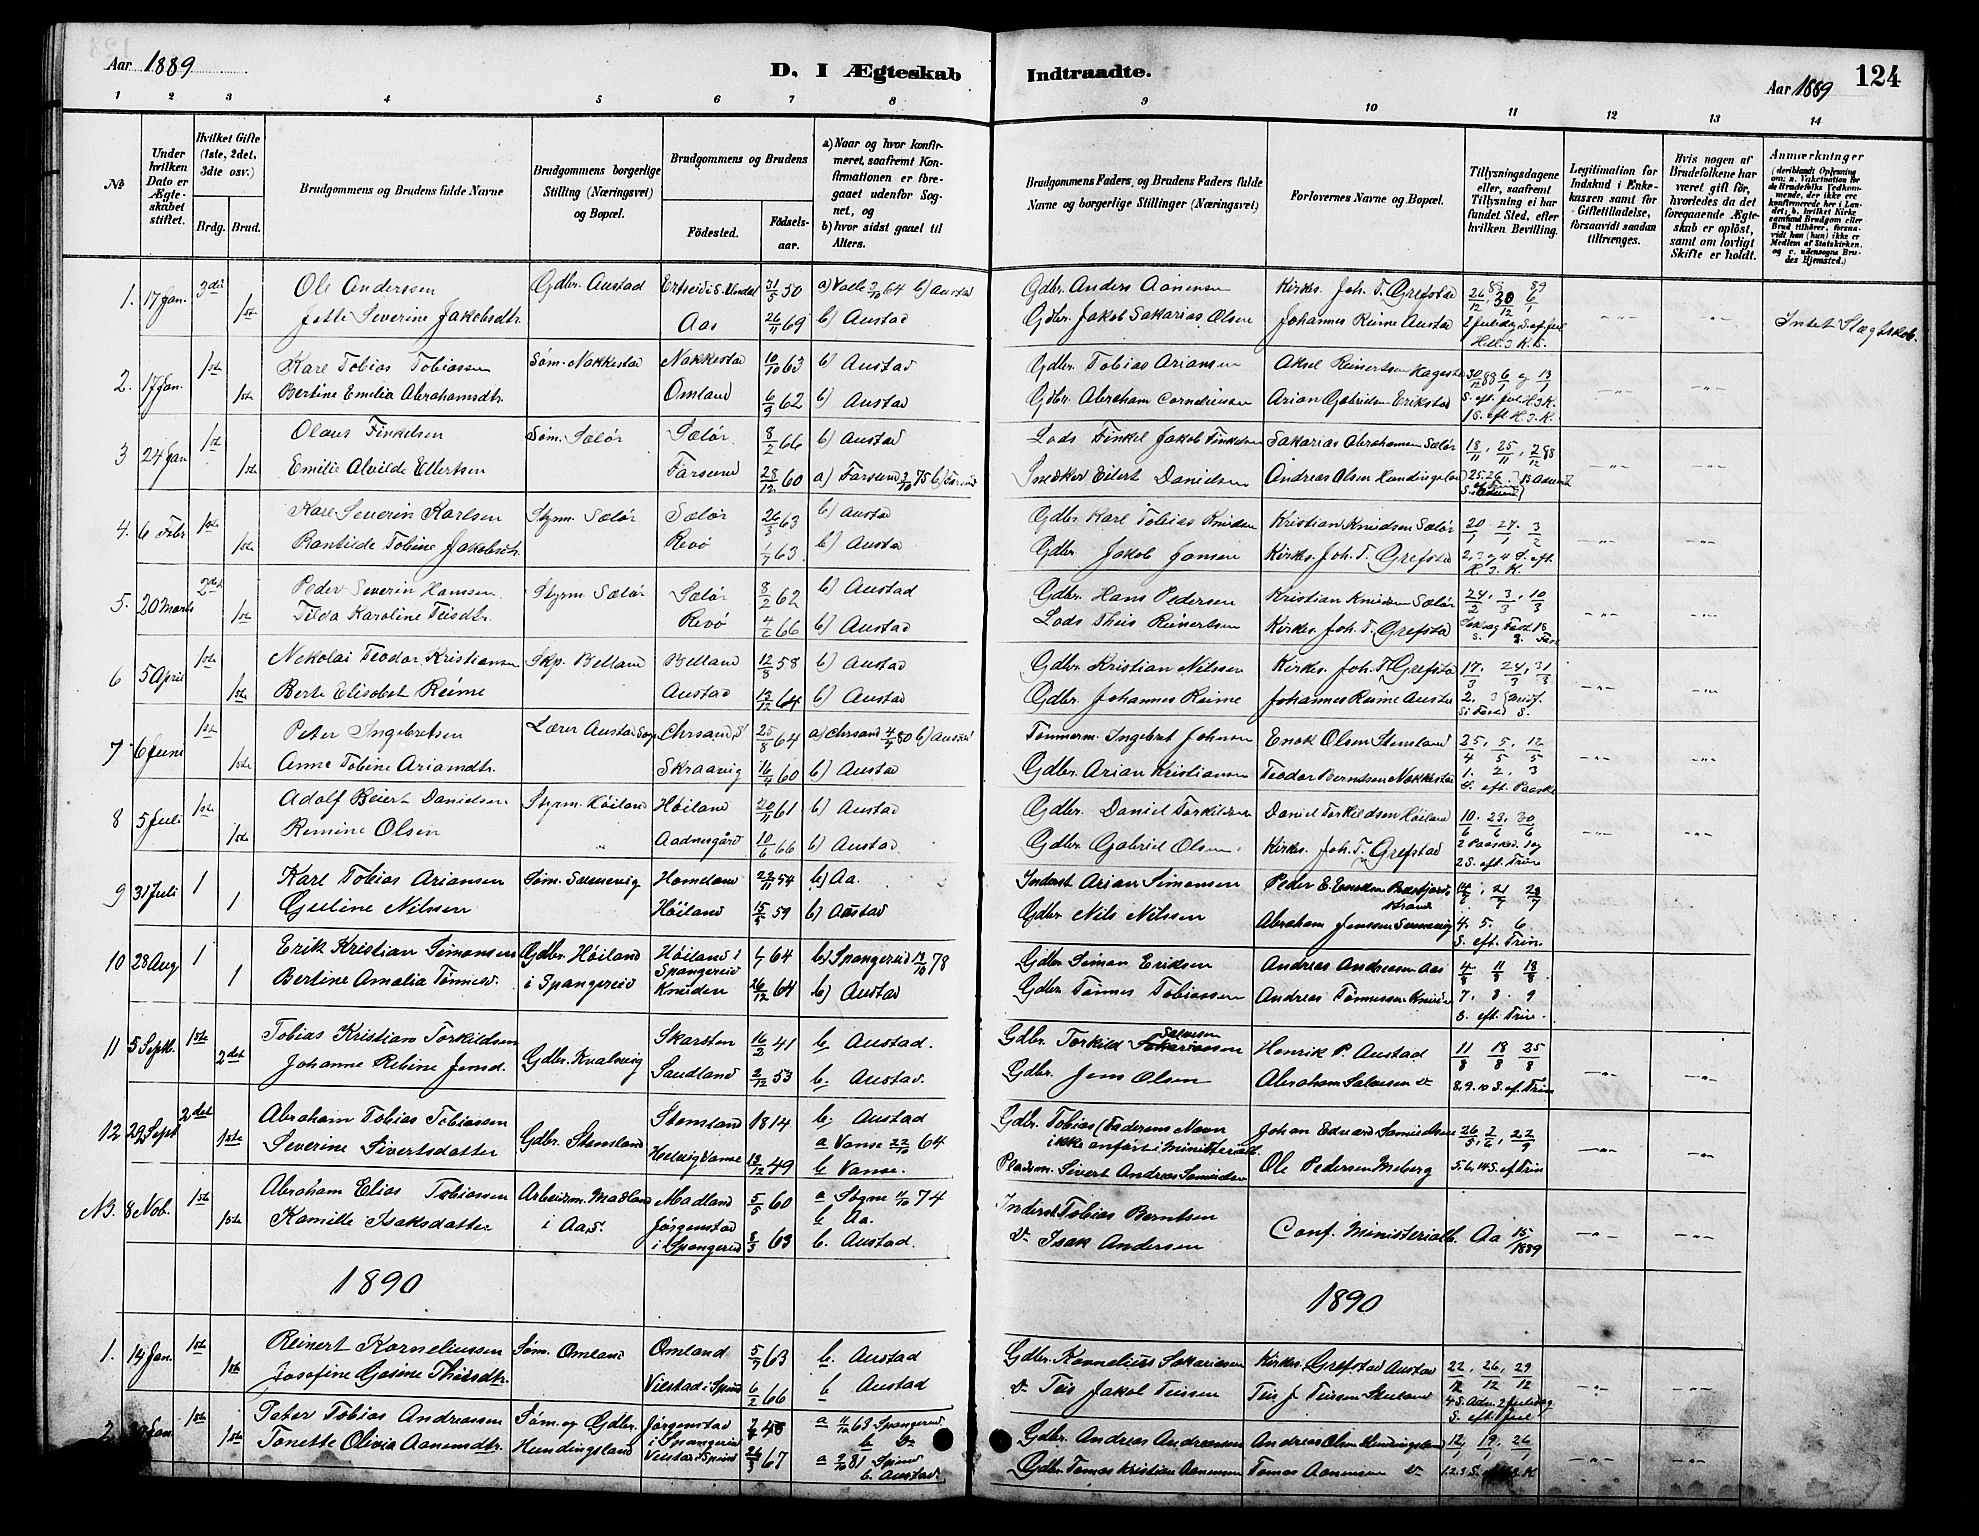 Aar 1889
D. I Ægteskab Indtraadte.
Aar 1889
124
1 2 3 4 5 6 7 8 9 10 11 12 13 14
№
Under hvilken Dato er Ægteskabet stiftet.
Hvilket Gifte (1ste, 2det, 3die osv.)
Brdg. Brud.
Brudgommens og Brudens fulde Navne
Brudgommens borgerlige Stilling (Næringsvei) og Bopæl.
Brudgommens og Brudens
Fødested.
Fødselsaar.
a) Naar og hvor konfirmeret, saafremt Konfirmationen er foregaaet udenfor Sognet, og
b) hvor sidst gaaet til Alters.
Brudgommens Faders, og Brudens Faders fulde Navne og borgerlige Stillinger (Næringsvei)
Forlovernes Navne og Bopæl.
Tillysningsdagene eller, saafremt Tillysning ei har fundet Sted, efter hvilken Bevilling.
Legitimation for Indskud i Enkekassen samt for Giftetilladelse, forsaavidt saadan tiltrænges.
Hvis nogen af Brudefolkene har været gift før, hvorledes da det foregaaende Ægteskab er opløst, samt om lovligt Skifte er holdt.
Anmærkninger (deriblandt Oplysning om: a. Vakcination for de Brudefolks Vedkommende, der ikke ere konfirmerede her i Landet; b. hvilket Kirkesamfund Brudgom eller Brud tilhører, forsaavidt han (hun) ikke er Medlem af Statskirken, og c. udensogns Brudes Hjemsted.)
1. 17 Jan. 3die Ole Anderssen Gdbr. Austad 31/5 50 b) Austad Gdbr. Anders Aanensen Kirkes. Joh. T. Grefstad
1ste Jette Severine Jakobsdtr. Aas 26/11 69 b) Austad Gdbr. Jakob Sakarias Olsen Johannes Reime Austad Intet Slægtskab.
2. 17 Jan. 1ste Karl Tobias Tobiassen Søm. Nakkestad Nakkestad 10/10 63 b) Austad Gdbr. Tobias Ariansen Aksel Reinertsen
1ste Bertine Emilia Abrahamsdtr. Omland 6/9 62 b) Austad Gdbr. Abraham Cornelius​sen Arian Gabrielsen Erikstad
3 24 Jan 1ste Olaus Finkelsen Søm. Sælør Sælør 8/2 66 b) Austad Lods Finkel Jakob Finkelsen Sakarias Abrahamsen Sælør 18/11, 25/11, 2/12 88
1ste Emilie Alvilde Ellertsen Farsund 28/12 60 a) Farsund 3/10 75 b) Farsund Snedker Eilert Danielsen Andreas Olsen Hundingsland
4. 6 Febr 1ste Karl Severin Karlsen Styrm. Sælør Sælør 26/3 63 b) Austad Gdbr. Karl Tobias Knudsen Kristian Knudsen Sælør 20/1, 27/1, 3/2
1ste Rantilde Tobine Jakobsdtr. Revø 1/7 63 b) Austad Gdbr. Jakob Jansen Kirkes. Joh. T. Grefstad
5. 20 Marts 2det Peder Severin Hanssen Styrm. Sælør Sælør 8/2 62 b) Austad Gdbr. Hans Pedersen Kristian Knudsen Sælør 24/2, 3/3, 10/3
1ste Tilda Karoline Teisdtr. Revø 4/2 66 b) Austad Lods Theis Reinertsen Kirkes. Joh. T. Grefstad
6 5 April 1ste Nekolai Teodor Kristiansen Skp. Belland Belland 12/8 58 b) Austad Gdbr. Kristian Nilssen Kirkes. Joh. T. Grefstad 17/3, 24/3, 31/3
1ste Berte Elisabet Reime Austad 13/12 64 b) Austad Gdbr. Johannes Reime Johannes Reime Austad
7 6 Juni 1ste Peter Ingebretsen Lærer Austad Sogn Chrsand S. 25/8 64 a) Chrsand 4/7 80 b) Austad Tømmerm. Ingebret Johnsen Enok Olsen Stensland 25/4, 5/5, 12/5
1ste Anne Tobine Ariansdtr. Skraavig 16/4 60 b) Austad Gdbr. Arian Kristiansen Teodor Berntsen Nakkestad 1. 2. 3 S. eft. Paaske
8 5 Juli 1ste Adolf Beiert Danielsen Styrm. Høiland Høiland 20/11 61 b) Austad Gdbr. Daniel Torkildsen Daniel Torkildsen Høiland 10/6, 23/6, 30/6
1ste Remine Olsen Aadnesgård 10/6 66 b) Austad Gdbr. Gabriel Olsen Kirkes. Joh. T. Grefstad 2 Paasked. 1 og 2 S. eft. Trin
9 31 Juli 1 Karl Tobias Ariansen Søm. Svenevig Homeland 22/11 54 b) Aa. Inderst Arian Simonsen Peder E.
1 Guline Nilssen Høiland 15/5 59 b) Austad Gdbr. Nils Nilssen Abraham Jenssen Svenevig 4. 5. 6 S. eft. Trin.
10 28 Aug 1 Erik Kristian Simonsen Gdbr. Høiland i Spangereid Høiland i Spangereid 1/7 64 b) Spangereid Gdbr. Simon Eriksen Andreas Andreasen Aas 4/8 11/8 18/8
1 Bertine Amalia Tønnesd. Knuden 26/12 64 b) Austad Gdbr. Tønnes Tobiassen Andreas Tønnessen Knuden 7. 8. 9 S. eft. Trin.
11 5 Septb. 1ste Tobias Kristian Torkildsen Gdbr. Kvalsvig Skarsten 16/2 41 b. Austad. Gdbr. Torkild Salvesen Henrik P. Austad 11/8 18/8 25/8
2det Johanne Rebine Jensd. Sandland 2/12 53 b. Austad. Gdbr. Jens Olsen Abraham Salvesen do 8. 9. 10 S. ef. Trin
12 29 Sept 2det Abraham Tobias Tobiassen Gdbr. Stensland Stensland 1814 b. Austad Gdbr. Tobias (Faderens Navn ikke anført i Ministerialb. Johan Edvard Samuelsen 26/5, 2/6, 22/9
1ste Severine Sivertsdatter Helvig Vanse 13/12 49 a Vanse 22/10 64 b Vanse. Pladsm. Sivert Andreas Samuelsen Ole Pedersen Meberg
13. 8 Nob. 1ste Abraham Elias Tobiassen Arbeidsm. Madland i Aa, S. Madland 5/5 60 a Søgne 74 b Aa. Inderst Tobias Berntsen Conf. Ministerialb. Aa 15/1889
1ste Kamille Isaksdatter Jørgenstad i Spangereid 8/3 63 b. Austad. do Isak Andersen
1890 1890
1. 14 Jan. 1ste Reinert Korneliussen Søm. Omland Omland 5/7 63 b. Austad Gdbr. Kornelius Sakariasen Kirkes. Grefstad Austad 22/12, 26/12, 29/12
1ste Josefine Gosine Theisdtr. Vilstad i Spind 6/2 66 b Austad do Teis Jakob Teissen Teis J. Teissen
2. Jan. 1ste Peter Tobias Andreassen Søm. og Gdbr. Hundingsland Jørgenstad i Spangereid a 63 Spangereid b Do Gdbr. Andreas Andreassen Andreas Olsen Hundingsland 12/1, 19/1, 26/1
1ste Tonette Olivia Aanensdtr. 26/3 67 a 81 Spind b. Austad. Gdbr. Tomas Kristian Aanensen Tomas Aanensen do